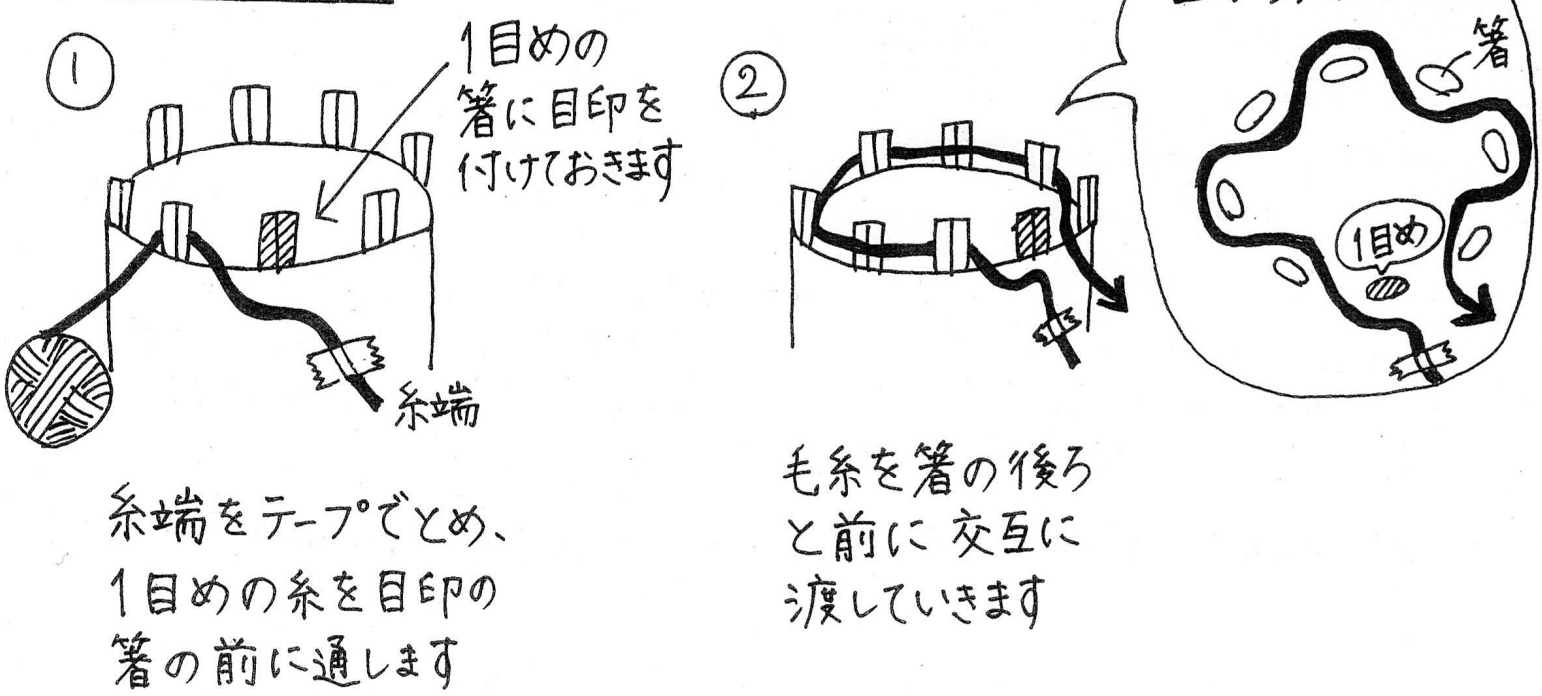 ①
1目めの
箸に目印を
付けておきます
糸端
糸端をテープでとめ、
1目めの糸を目印の
箸の前に通します
②
箸
1目め
毛糸を箸の後ろ
と前に交互に
渡していきます